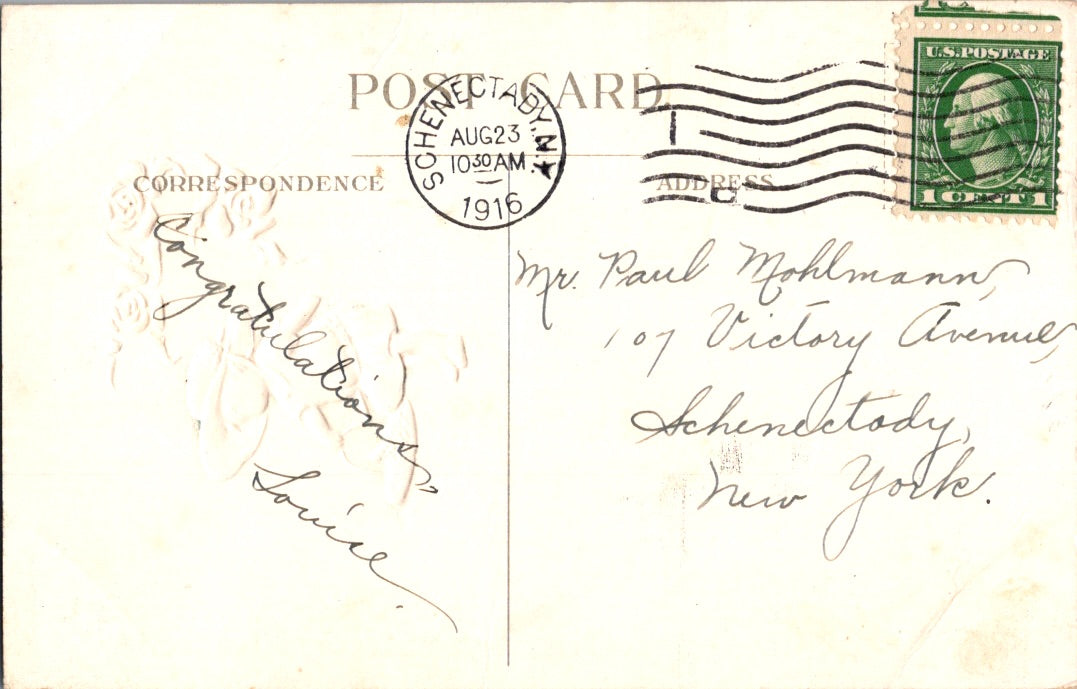 POST CARD
SCHENECTADY, N.
AUG 23
10 30 AM
1916
U.S. POSTAGE
1 CENT 1
CORRESPONDENCE
ADDRESS
Congratulations,
Louise.
Mr. Paul Mohlmann,
107 Victory Avenue,
Schenectady,
New York.